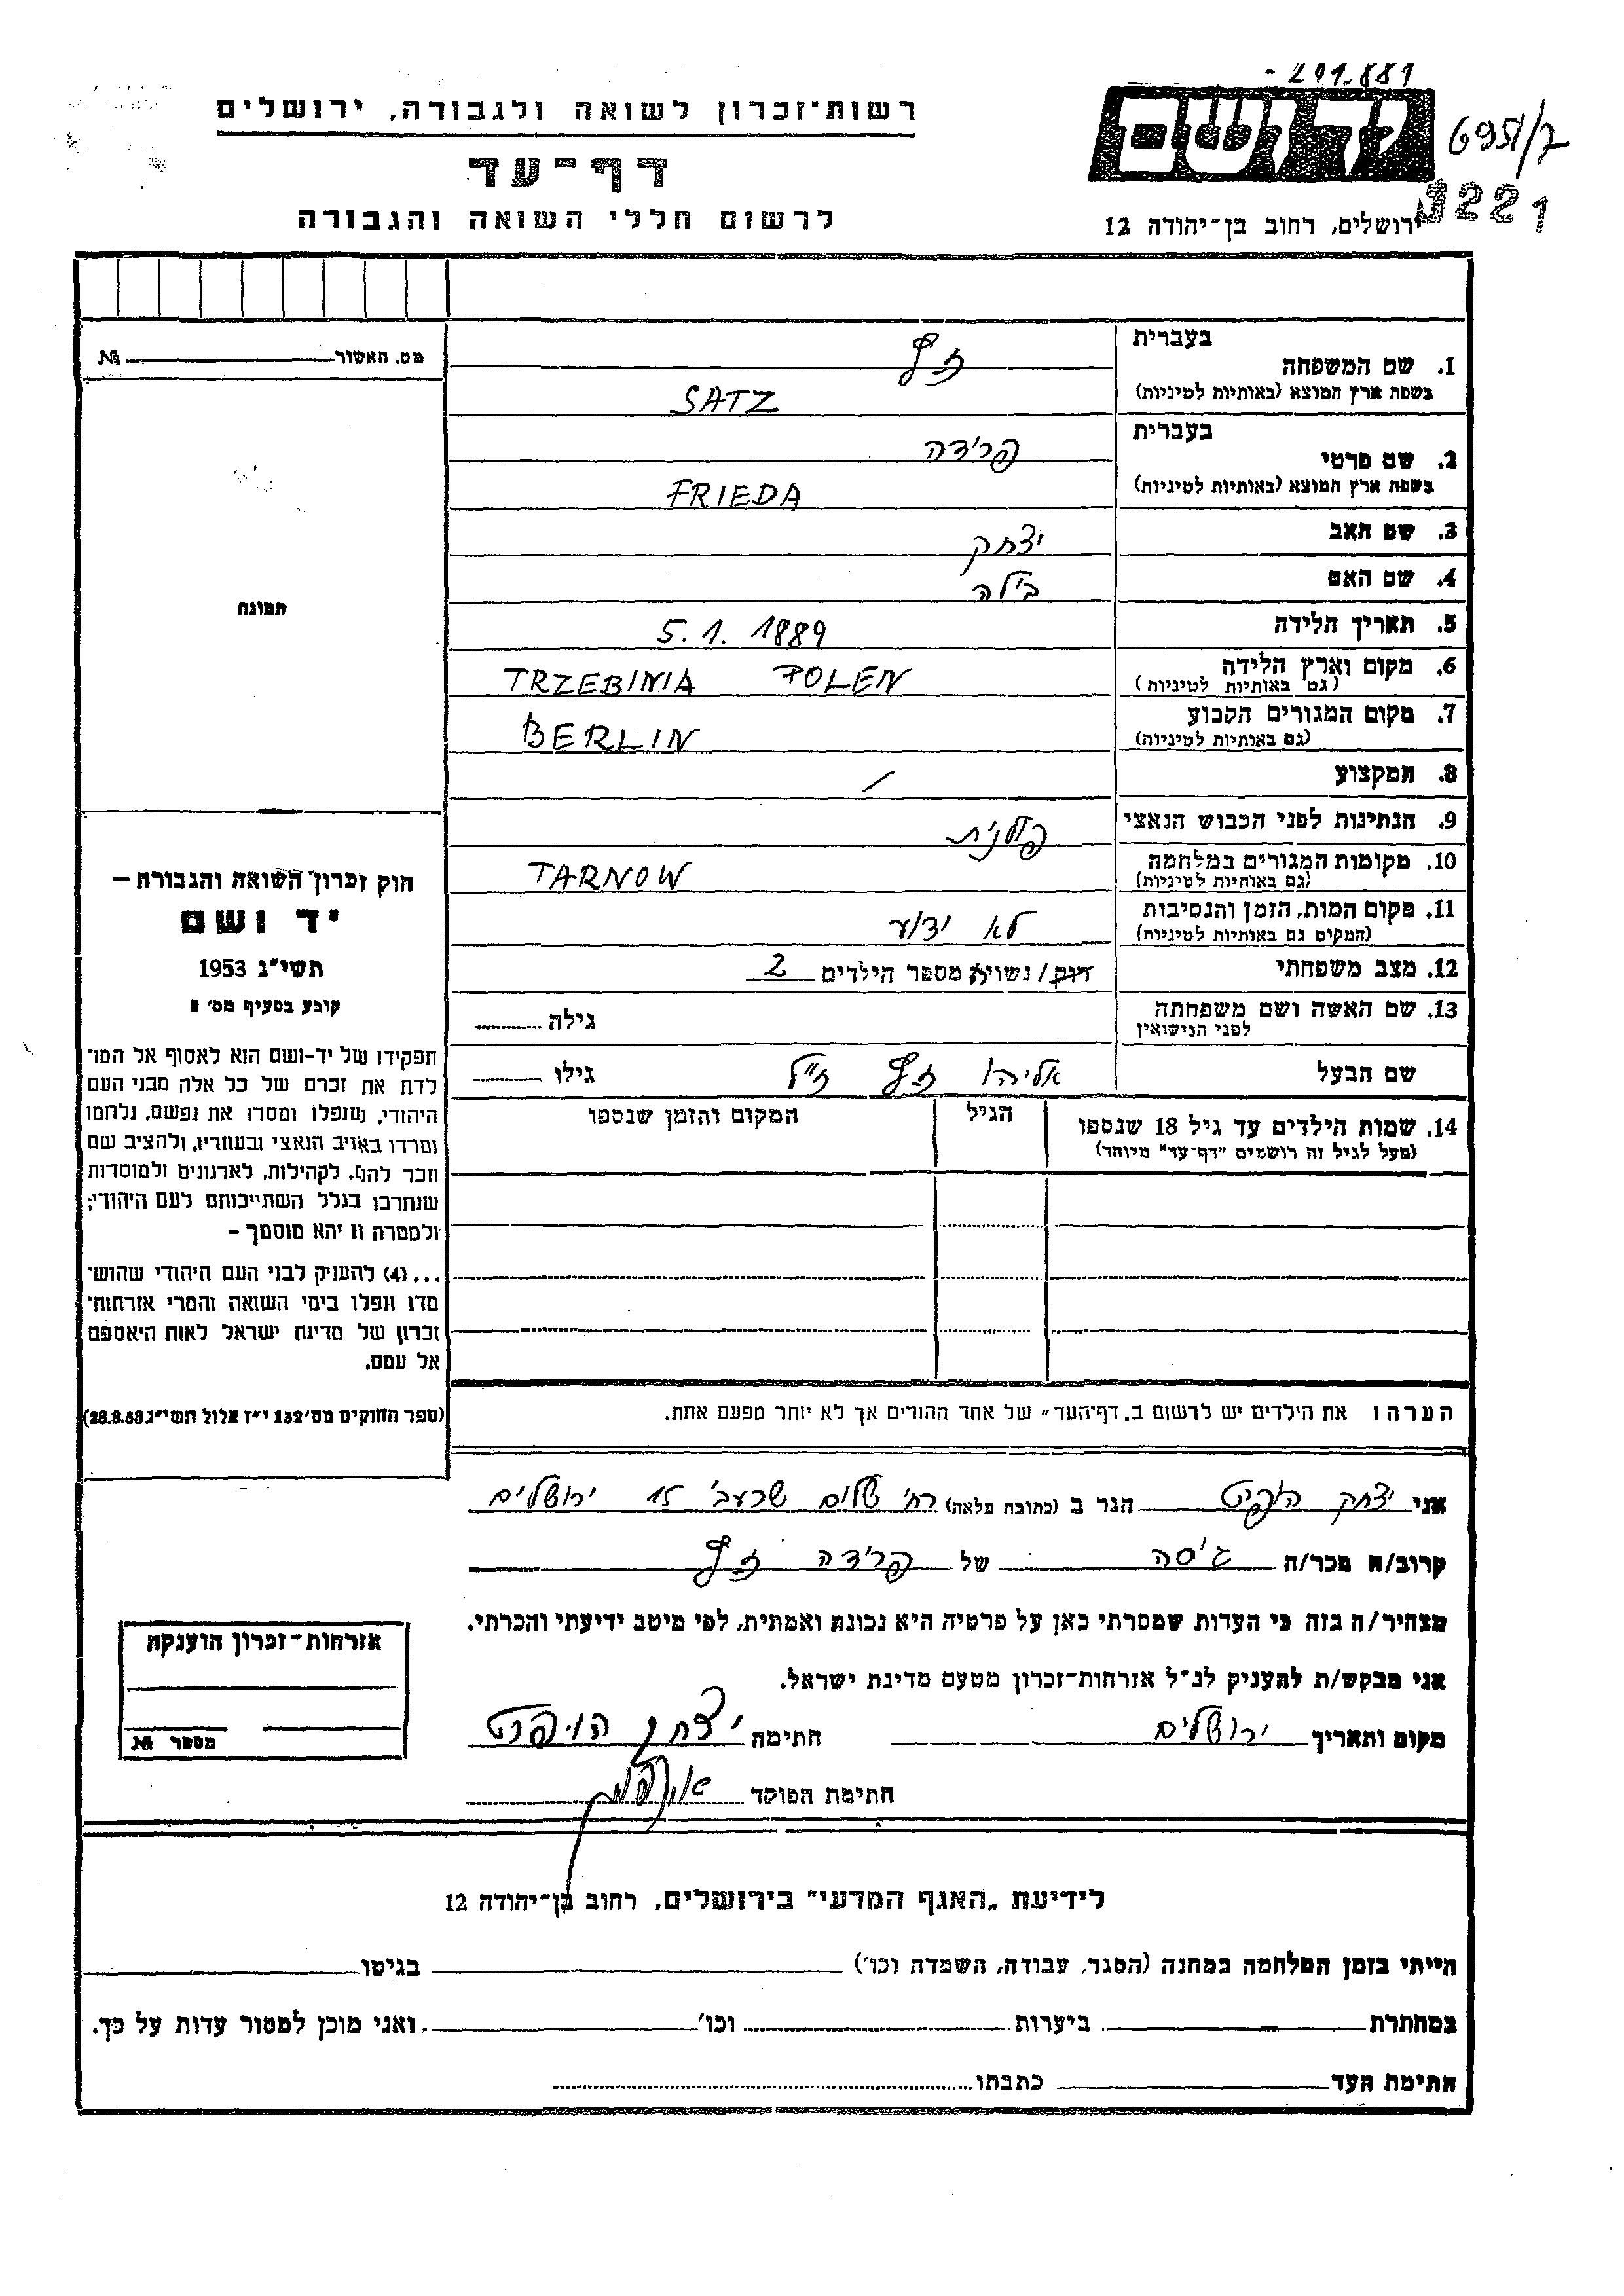 - 291.881
רשות־זכרון לשואה ולגבורה, ירושלים
ידושם
6951/7
דף־עד
3221
לרשום חללי השואה והגבורה
ירושלים, רחוב בן־יהודה 12
מס. האשור № 
בעברית
1. שם המשפחה זץ
בשפת ארץ המוצא (באותיות לטיניות) SATZ
בעברית
2. שם פרטי פרידה
בשפת ארץ המוצא (באותיות לטיניות) FRIEDA
3. שם האב יצחק
4. שם האם בילה
תמונה
5. תאריך הלידה 5.1.1889
6. מקום וארץ הלידה TRZEBINIA POLEN
(גם באותיות לטיניות)
7. מקום המגורים הקבוע BERLIN
(גם באותיות לטיניות)
8. המקצוע /
9. הנתינות לפני הכבוש הנאצי פולנית
10. מקומות המגורים במלחמה TARNOW
(גם באותיות לטיניות)
11. מקום המות, הזמן והנסיבות לא ידוע
(המקום גם באותיות לטיניות)
12. מצב משפחתי רוק/נשויה מספר הילדים 2
13. שם האשה ושם משפחתה גילה
לפני הנישואין
שם הבעל אליהו זץ ז"ל גילו
14. שמות הילדים עד גיל 18 שנספו הגיל המקום והזמן שנספו
(מעל לגיל זה רושמים "דף־עד" מיוחד)
חוק זכרון השואה והגבורה –
יד ושם
תשי"ג 1953
קובע בסעיף מס' 2
תפקידו של יד-ושם הוא לאסוף אל המו־
לדת את זכרם של כל אלה מבני העם
היהודי, שנפלו ומסרו את נפשם, נלחמו
ומרדו באויב הנאצי ובעוזריו, ולהציב שם
וזכר להם, לקהילות, לארגונים ולמוסדות
שנחרבו בגלל השתייכותם לעם היהודי;
ולמטרה זו יהא מוסמך –
...(4) להעניק לבני העם היהודי שהוש־
מדו ונפלו בימי השואה והמרי אזרחות־
זכרון של מדינת ישראל לאות היאספם
אל עמם.
(ספר החוקים מס' 132 י"ז אלול תשי"ג 28.8.53)
הערה: את הילדים יש לרשום ב„דף־העד" של אחד ההורים אך לא יותר מפעם אחת.
אני יצחק הגר ב (כתובת מלאה) רח' שלום שרעבי 15 ירושלים
קרוב/ה מכר/ה גיסה של פרידה זץ
מצהיר/ה בזה כי העדות שמסרתי כאן על פרטיה היא נכונה ואמתית, לפי מיטב ידיעתי והכרתי.
אני מבקש/ת להעניק לנ"ל אזרחות־זכרון מטעם מדינת ישראל.
מקום ותאריך ירושלים חתימה יצחק
חתימת הפוקד
אזרחות־זכרון הוענקה
מספר №
לידיעת „האגף המדעי" בירושלים, רחוב בן־יהודה 12
הייתי בזמן המלחמה במחנה (הסגר, עבודה, השמדה וכו') בגיטו
במחתרת ביערות וכו' ואני מוכן למסור עדות על כך.
חתימת העד כתבתו